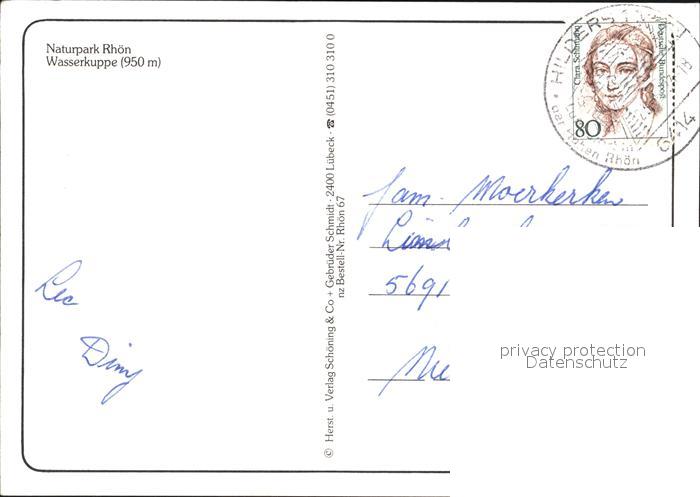 Naturpark Rhön
Wasserkuppe (950 m)
© Herst. u. Verlag Schöning & Co + Gebrüder Schmidt · 2400 Lübeck · ☎ (0451) 310 310 0
nz Bestell-Nr. Rhön 67
Clara Schumann
Deutsche Bundespost
80
HILDERS
6414
der Hohen Rhön
fam. Moerkerken
5691
Leo
Diny
privacy protection
Datenschutz